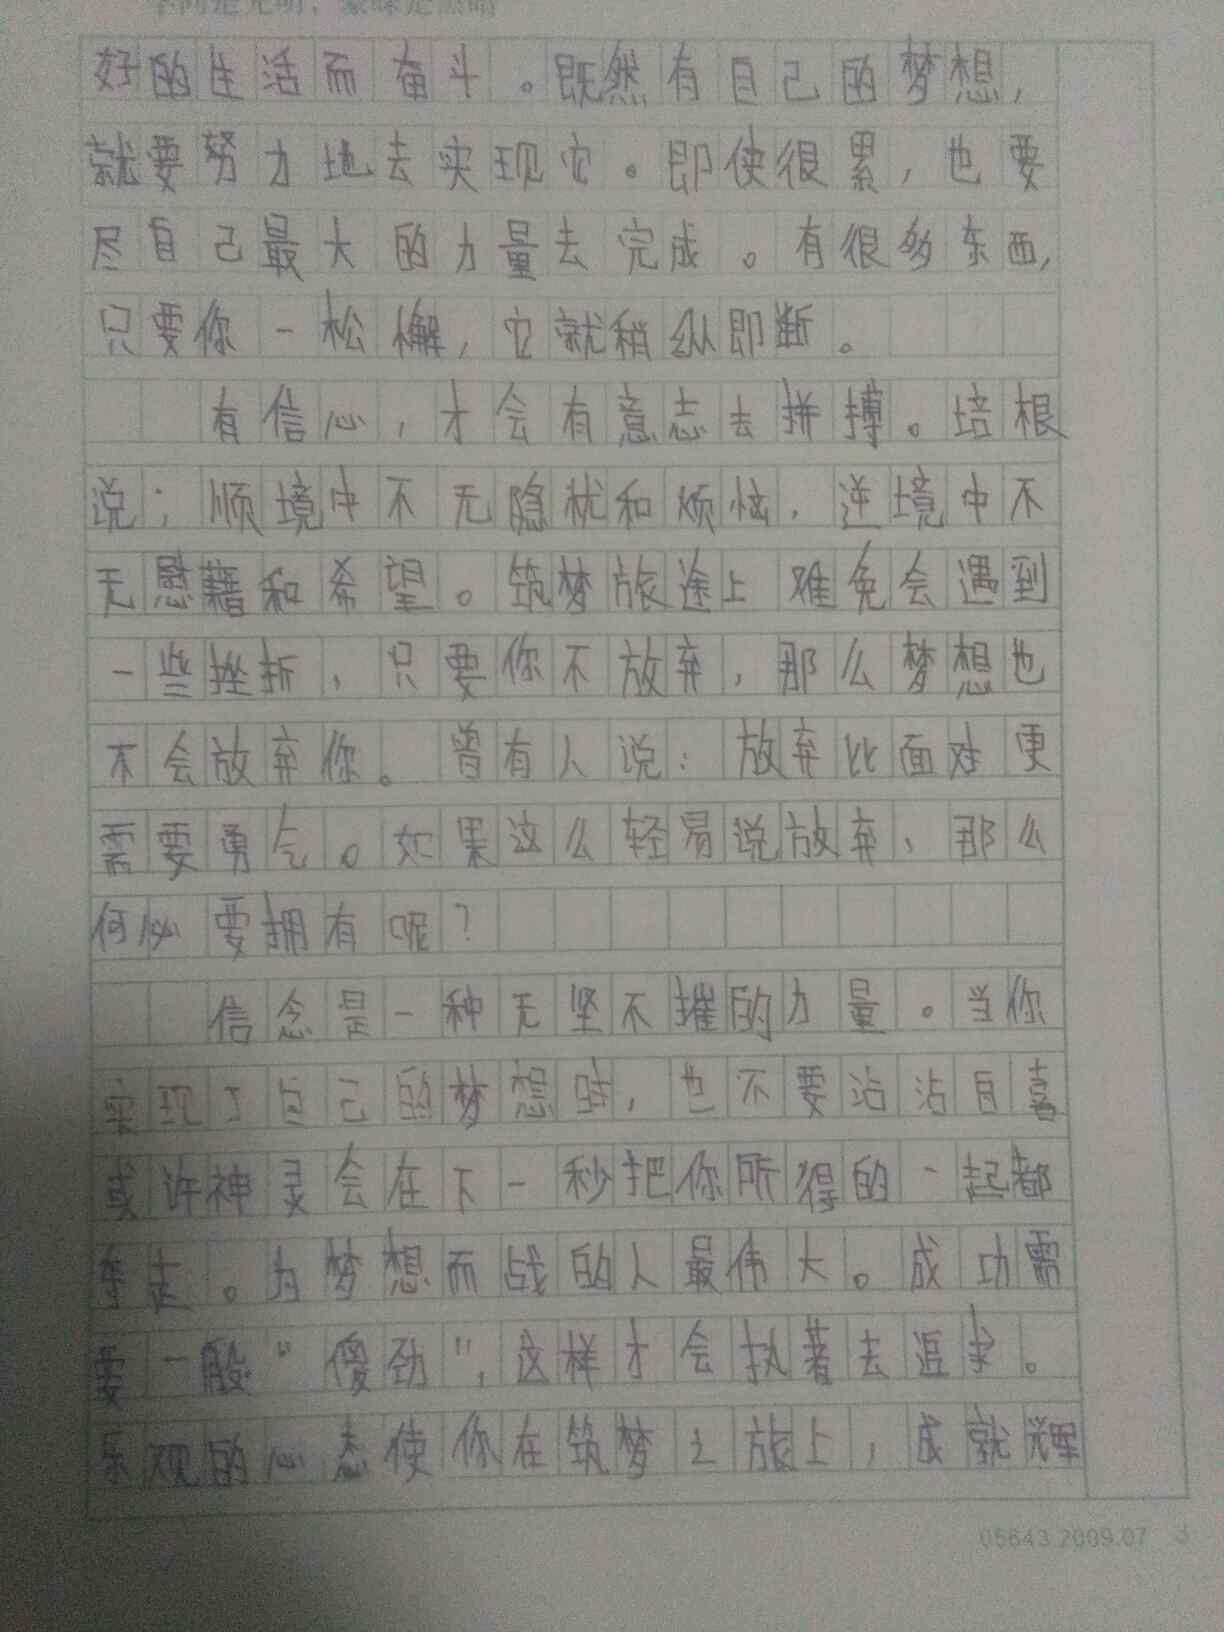 好的生活而奋斗。既然有自己的梦想，
就要努力地去实现它。即使很累，也要
尽自己最大的力量去完成。有很多东西，
只要你一松懈，它就稍纵即断。
有信心，才会有意志去拼搏。培根
说；顺境中不无隐忧和烦恼，逆境中不
无慰藉和希望。筑梦旅途上难免会遇到
一些挫折，只要你不放弃，那么梦想也
不会放弃你。曾有人说：放弃比面对更
需要勇气。如果这么轻易说放弃，那么
何必要拥有呢？
信念是一种无坚不摧的力量。当你
实现了自己的梦想时，也不要沾沾自喜
或许神灵会在下一秒把你所得的一起都
拿走。为梦想而战的人最伟大。成功需
要一般“傻劲”，这样才会执著去追求。
乐观的心态使你在筑梦之旅上，成就辉
05643.2009.07 3